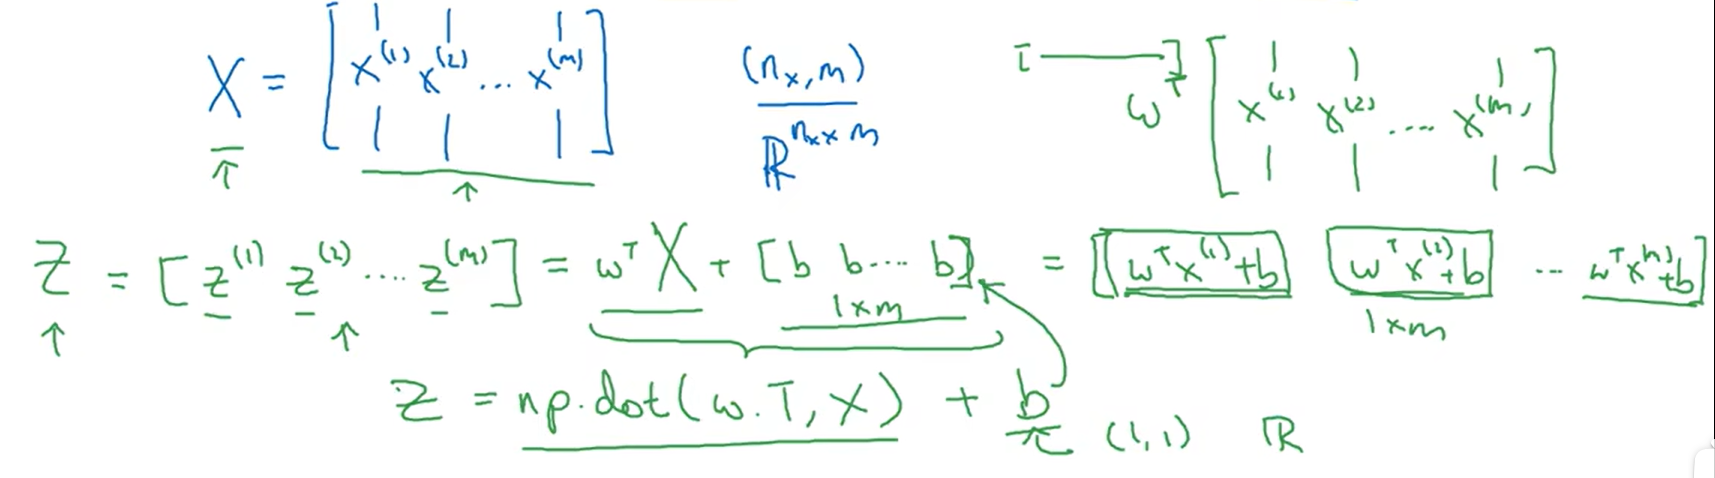 X = [x^(1) x^(2) ... x^(m)] (n_x, m) w^T [x^(1) x^(2) .... x^(m)]
ℝ^(n_x × m)
Z = [z^(1) z^(2) .... z^(m)] = w^T X + [b b .... b] = [w^T x^(1)+b w^T x^(2)+b ... w^T x^(m)+b]
1×m 1×m
Z = np.dot(w.T, X) + b (1,1) ℝ